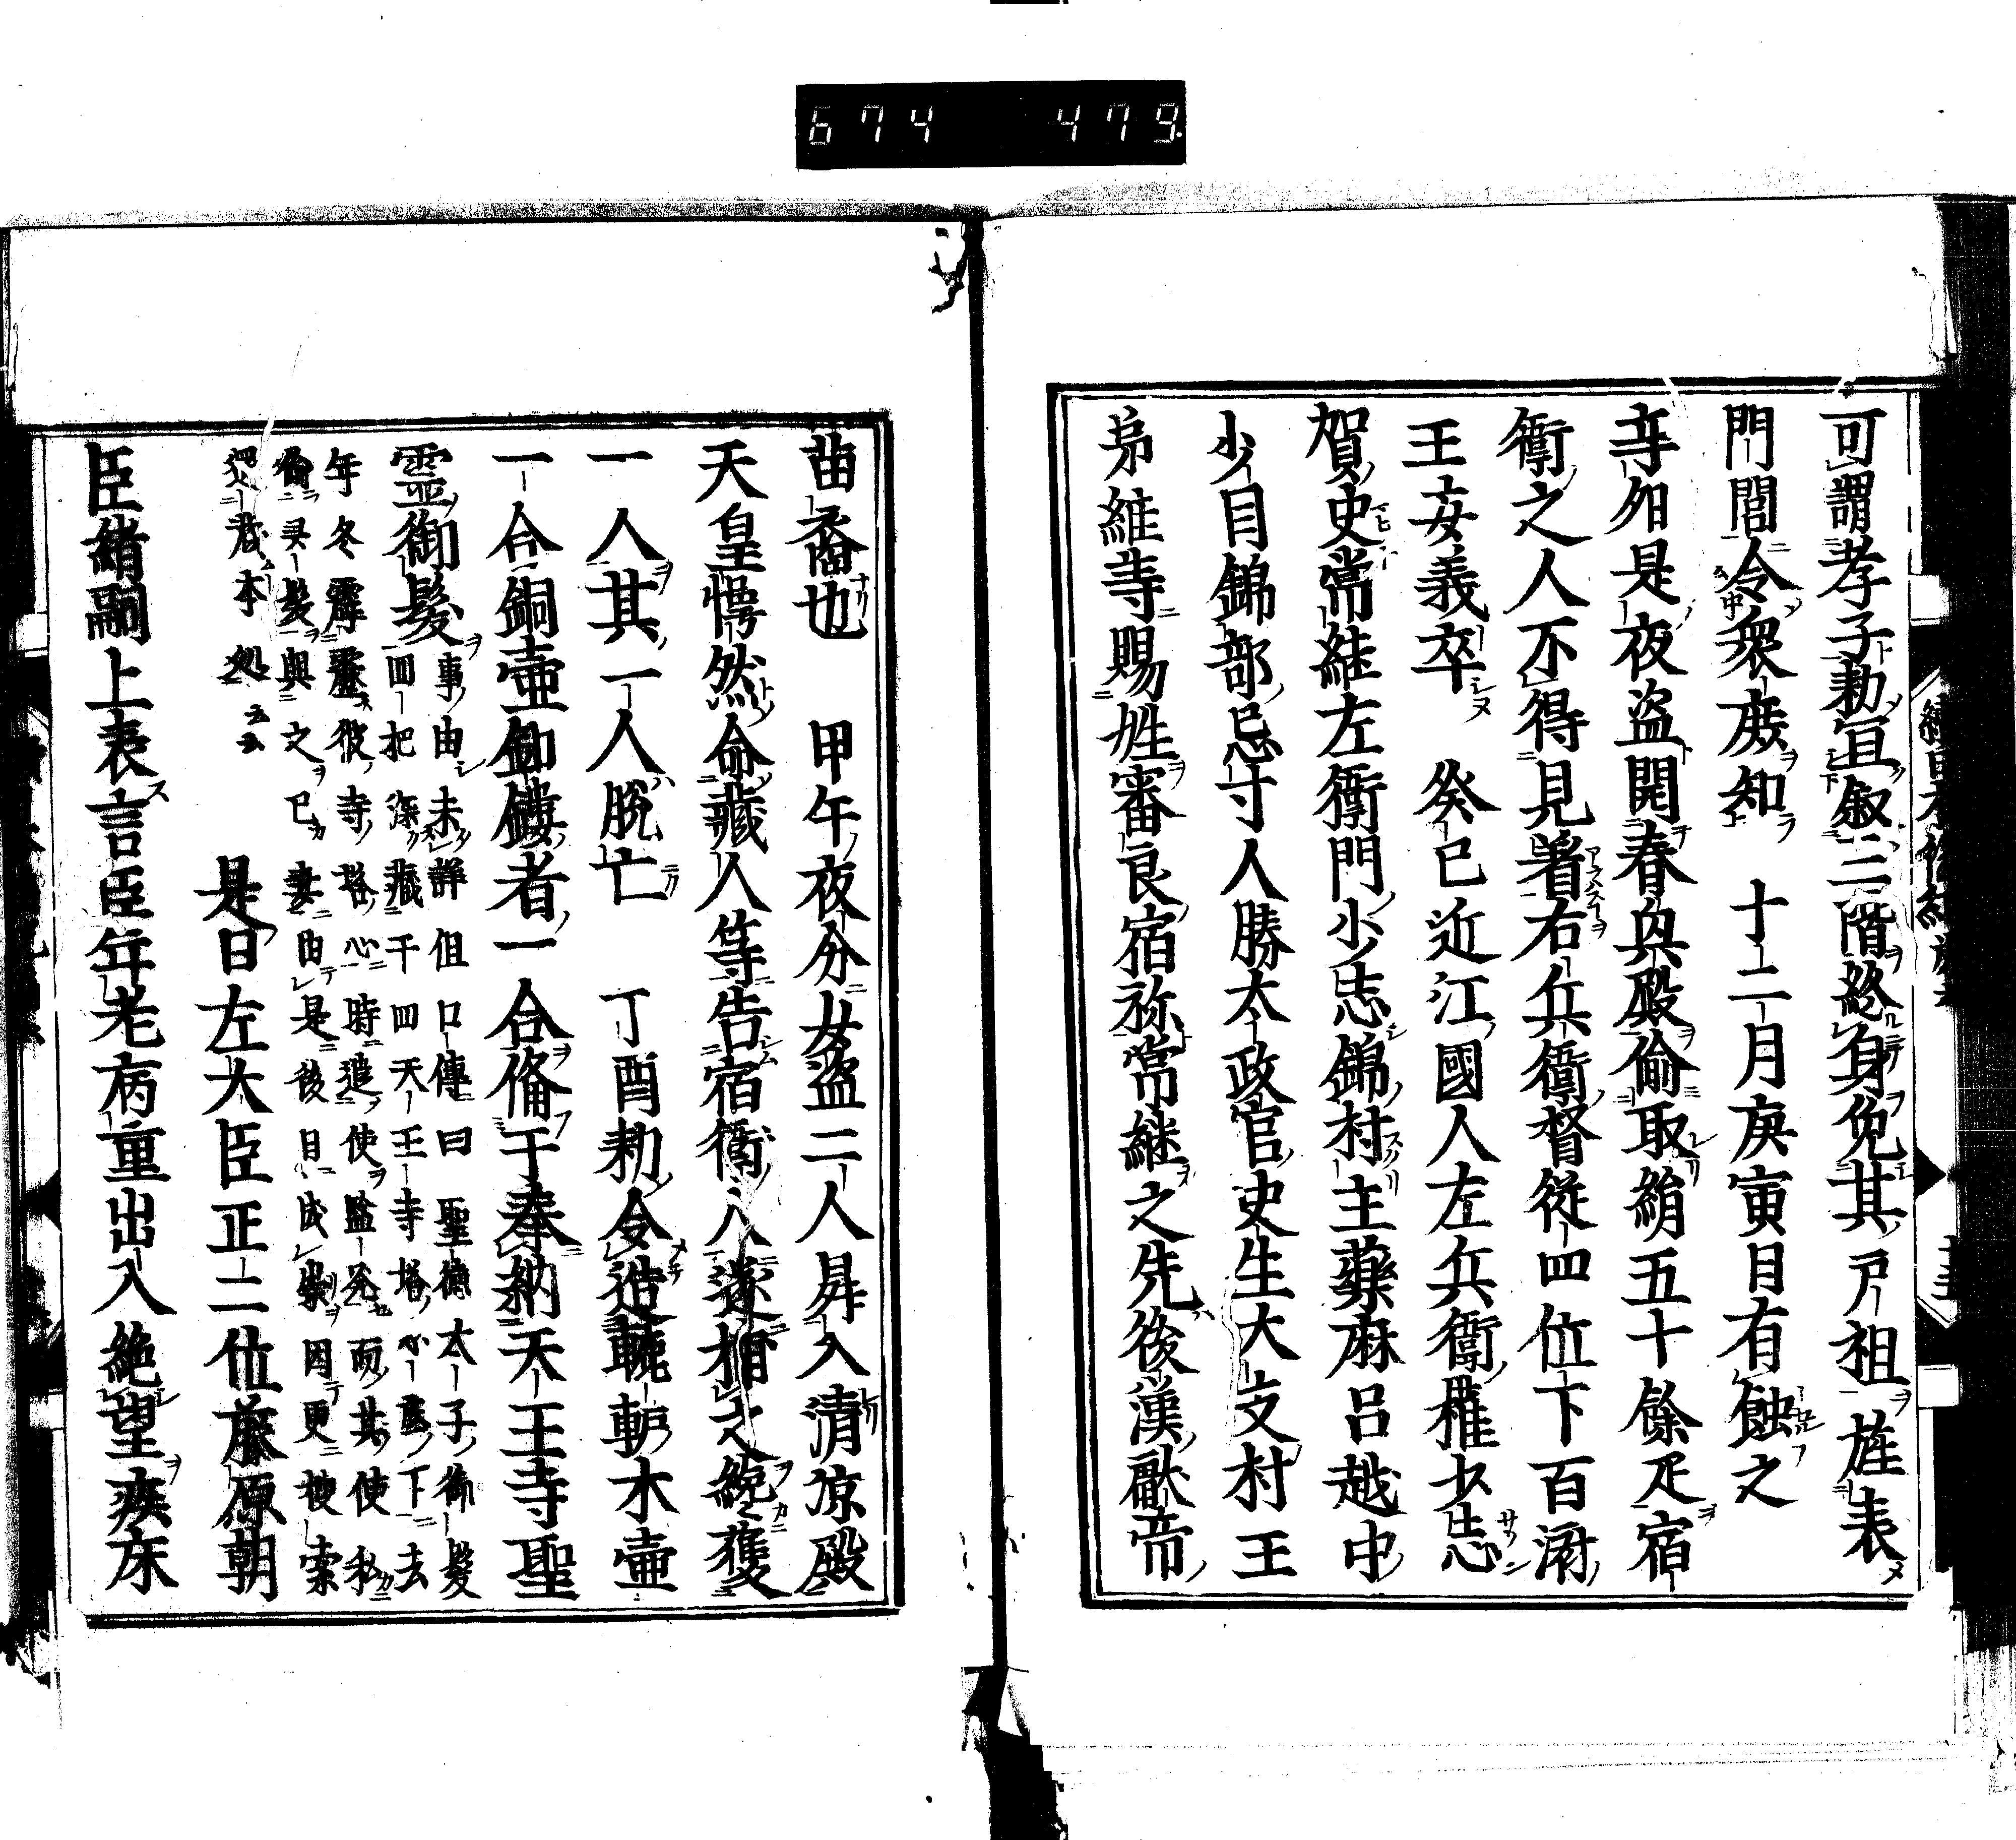 674 479
可謂孝子勅宜叙三階終身免其戸祖旌表
門閭令衆庶知 十二月庚寅日有蝕之
辛夘是夜盗開春興殿偷取絹五十餘疋宿
衛之人不得見著右兵衛督從四位下百済
王安義卒 癸巳近江國人左兵衛権少志
賀史常継左衛門少志錦村主薬麻呂越中
少目錦部忌寸人勝太政官史生大友村主
弟継等賜姓審良宿祢常継之先後漢獻帝
苗裔也 甲午夜分女盗二人昇入清凉殿
天皇愕然命藏人等告宿衛人遂捕之纔獲
一人其一人脱亡 丁酉勅令造轆轤木壷
一合銅壷鈿鏤者一合俻于奉納天王寺聖
靈御髮
事由未詳但口傳曰聖德太子御髮
四把深藏于四天王寺塔心底下去
年冬霹靂彼寺塔心時遣使監而其使私
偷髮與之已妻由是後自成祟因更捜索
藏本處云云
是日左大臣正二位藤原朝
臣緒嗣上表言臣年老病重出入絶望疾床